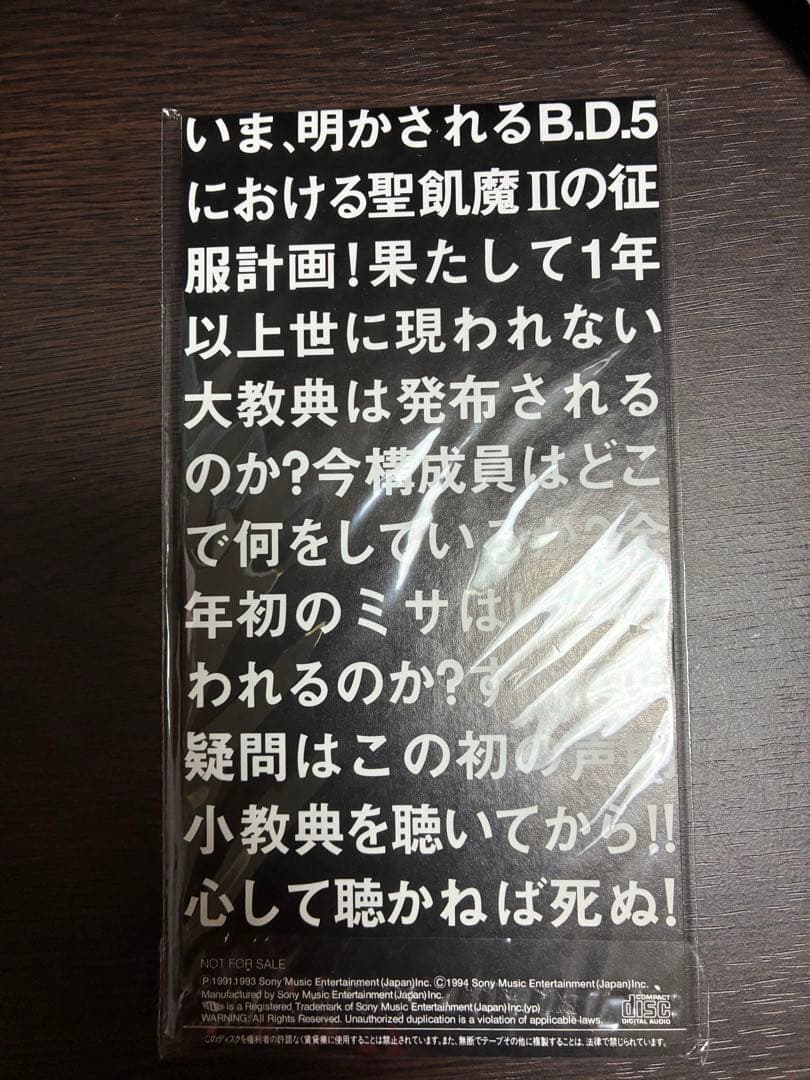 いま、明かされるB.D.5
における聖飢魔Ⅱの征
服計画！果たして1年
以上世に現われない
大教典は発布される
のか？今構成員はどこ
で何をしているか？今
年初のミサは
われるのか？す
疑問はこの初の声明
小教典を聴いてから!!
心して聴かねば死ぬ！
NOT FOR SALE
P 1991.1993 Sony Music Entertainment (Japan) Inc. Ⓒ1994 Sony Music Entertainment (Japan) Inc.
Manufactured by Sony Music Entertainment (Japan) Inc.
is a Registered Trademark of Sony Music Entertainment (Japan) Inc. (yp)
WARNING: All Rights Reserved. Unauthorized duplication is a violation of applicable laws.
COMPACT
disc
DIGITAL AUDIO
このディスクを権利者の許諾なく賃貸業に使用することは禁止されています。また、無断でテープその他に複製することは、法律で禁じられています。